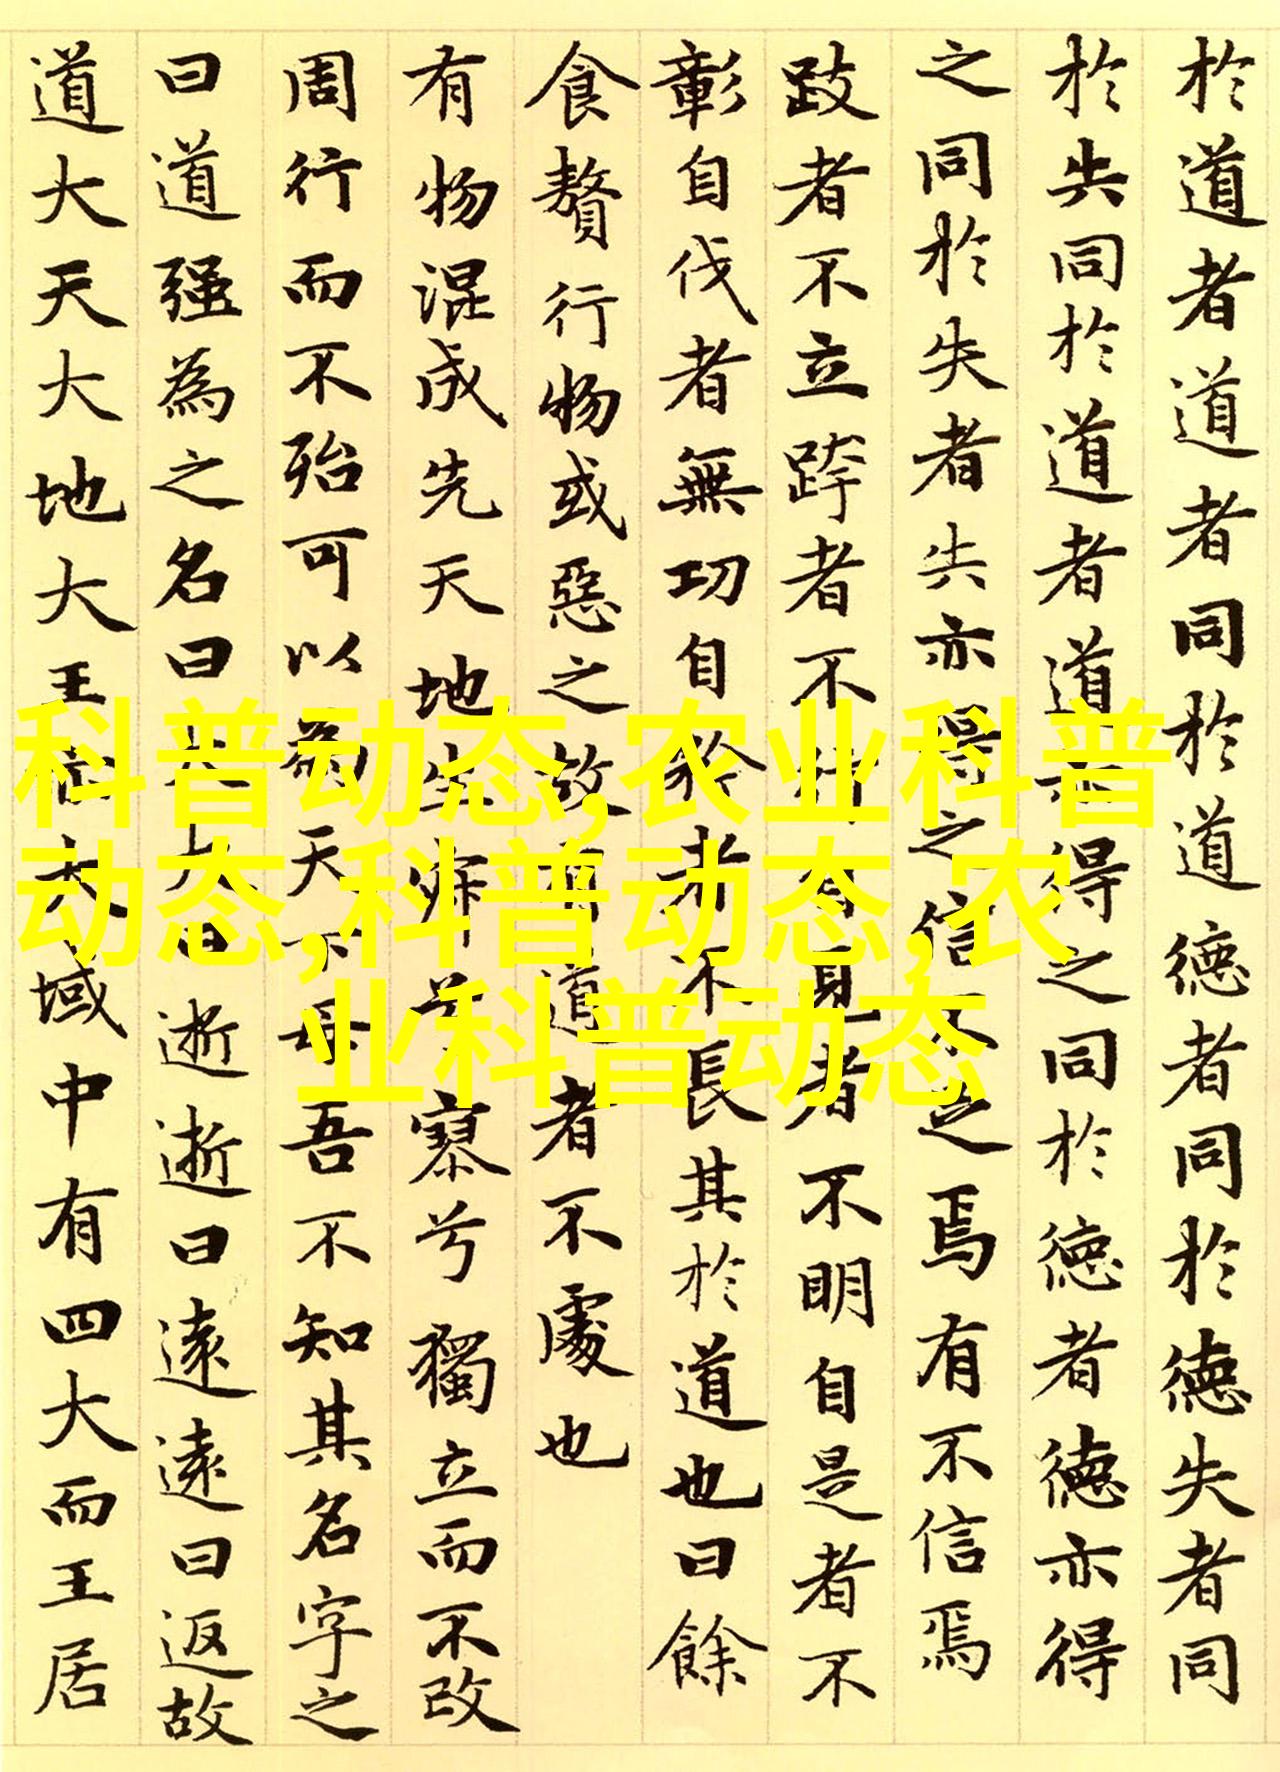 於道者道者同於道德者同於德失者同
於失同於道者道亦得之同於德者德亦得
之同於失者失亦得之信不足焉有不信焉
跂者不立跨者不行自見者不明自是者不
彰自伐者無功自矜者不長其於道也曰餘
食贅行物或惡之故有道者不處也
有物混成先天地生寂兮寥兮獨立而不改
周行而不殆可以為天下母吾不知其名字之
曰道强為之名曰大大曰逝逝曰遠遠曰返故
道大天大地大王大域中有四大而王居
科普动态,农业科普
动态,科普动态,农
业科普动态